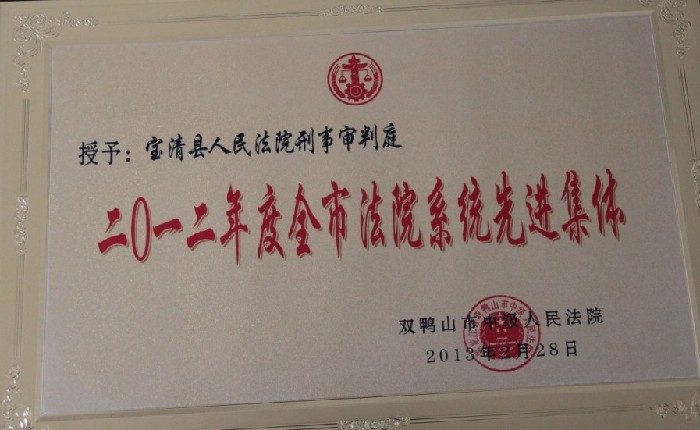 授予：宝清县人民法院刑事审判庭
二〇一二年度全市法院系统先进集体
双鸭山市中级人民法院
2013年2月28日